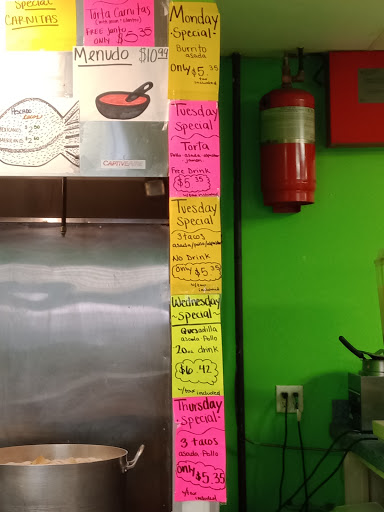 Special
CARNITAS
Torta Carnitas
FREE Jamaica
only $5.35
Menudo $10.99
PESCADO
CAPTIVEAIRE
Monday
·Special·
Burrito
asada
only $5.35
tax included
Tuesday
Special
~
Torta
Pollo-asada-
Jamon
Free Drink
$5.35
Tuesday
Special
3 tacos
asada/pollo/
No Drink
only $5.35
w/tax
included
Wednesday
~Special~
Quesadilla
asada-Pollo
20oz drink
$6.42
w/tax included
Thursday
·Special·
3 tacos
asada Pollo
only $5.35
w/tax
included